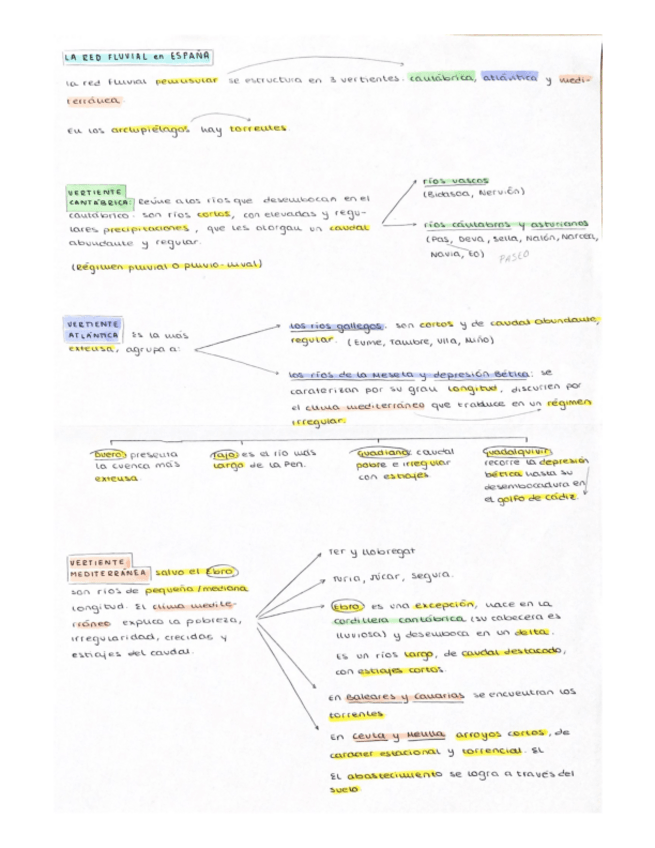 LA RED FLUVIAL en ESPAÑA
la red fluvial peninsular se estructura en 3 vertientes: cantábrica, atlántica y medi-
terránea.
En los archipiélagos hay torrentes.
VERTIENTE
CANTÁBRICA: Reúne a los ríos que desembocan en el
cantábrico: son ríos cortos, con elevadas y regu-
lares precipitaciones, que les otorgan un caudal
abundante y regular.
(Régimen pluvial o pluvio-nival)
ríos vascos
(Bidasoa, Nervión)
ríos cántabros y asturianos
(Pas, Deva, Sella, Nalón, Narcea,
Navia, Eo)
PASEO
VERTIENTE
ATLÁNTICA Es la más
extensa, agrupa a:
los ríos gallegos: son cortos y de caudal abundante,
regular. (Eume, Tambre, Ulla, Miño)
los ríos de la Meseta y depresión Bética: se
caraterizan por su gran longitud, discurren por
el clima mediterráneo que traduce en un régimen
irregular.
Duero: presenta
la cuenca más
extensa.
Tajo: es el río más
largo de la Pen.
Guadiana: caudal
pobre e irregular
con estiajes
Guadalquivir:
recorre la depresión
bética hasta su
desembocadura en
el golfo de cádiz.
VERTIENTE
MEDITERRÁNEA salvo el Ebro
son ríos de pequeña/mediana
longitud. El clima medite-
rráneo explica la pobreza,
irregularidad, crecidas y
estiajes del caudal.
Ter y llobregat
Turia, Júcar, Segura.
Ebro es una excepción, nace en la
cordillera cantábrica (su cabecera es
lluviosa) y desemboca en un delta.
Es un ríos largo, de caudal destacado,
con estiajes cortos.
en Baleares y Canarias se encuentran los
torrentes
en Ceuta y Melilla arroyos cortos, de
carácter estacional y torrencial. El
El abastecimiento se logra a través del
suelo